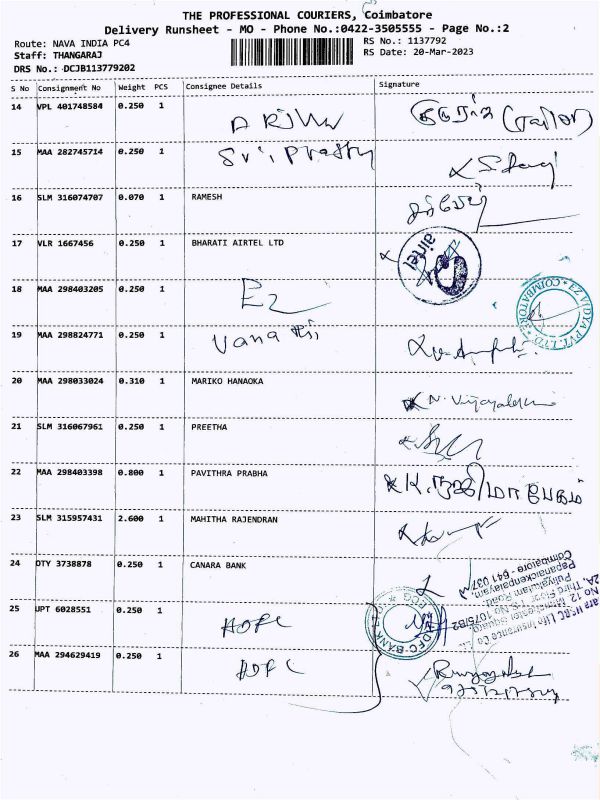 THE PROFESSIONAL COURIERS, Coimbatore
Delivery Runsheet - MO - Phone No.:0422-3505555 - Page No.:2
Route: NAVA INDIA PC4 RS No.: 1137792
Staff: THANGARAJ RS Date: 20-Mar-2023
DRS No.: DCJB113779202
S No Consignment No Weight PCS Consignee Details Signature
14 VPL 401748584 0.250 1
15 MAA 282745714 0.250 1
16 SLM 316074707 0.070 1 RAMESH
17 VLR 1667456 0.250 1 BHARATI AIRTEL LTD airtel
18 MAA 298403205 0.250 1 EZ EZ VIDYA PVT. LTD. COIMBATORE
19 MAA 298824771 0.250 1
20 MAA 298033024 0.310 1 MARIKO HANAOKA
21 SLM 316067961 0.250 1 PREETHA
22 MAA 298403398 0.800 1 PAVITHRA PRABHA
23 SLM 315957431 2.600 1 MAHITHA RAJENDRAN
24 OTY 3738878 0.250 1 CANARA BANK
25 UPT 6028551 0.250 1 HDFC
26 MAA 294629419 0.250 1 HDFC
Life Insurance Co
Papanaickenpalayam,
Coimbatore - 641 037